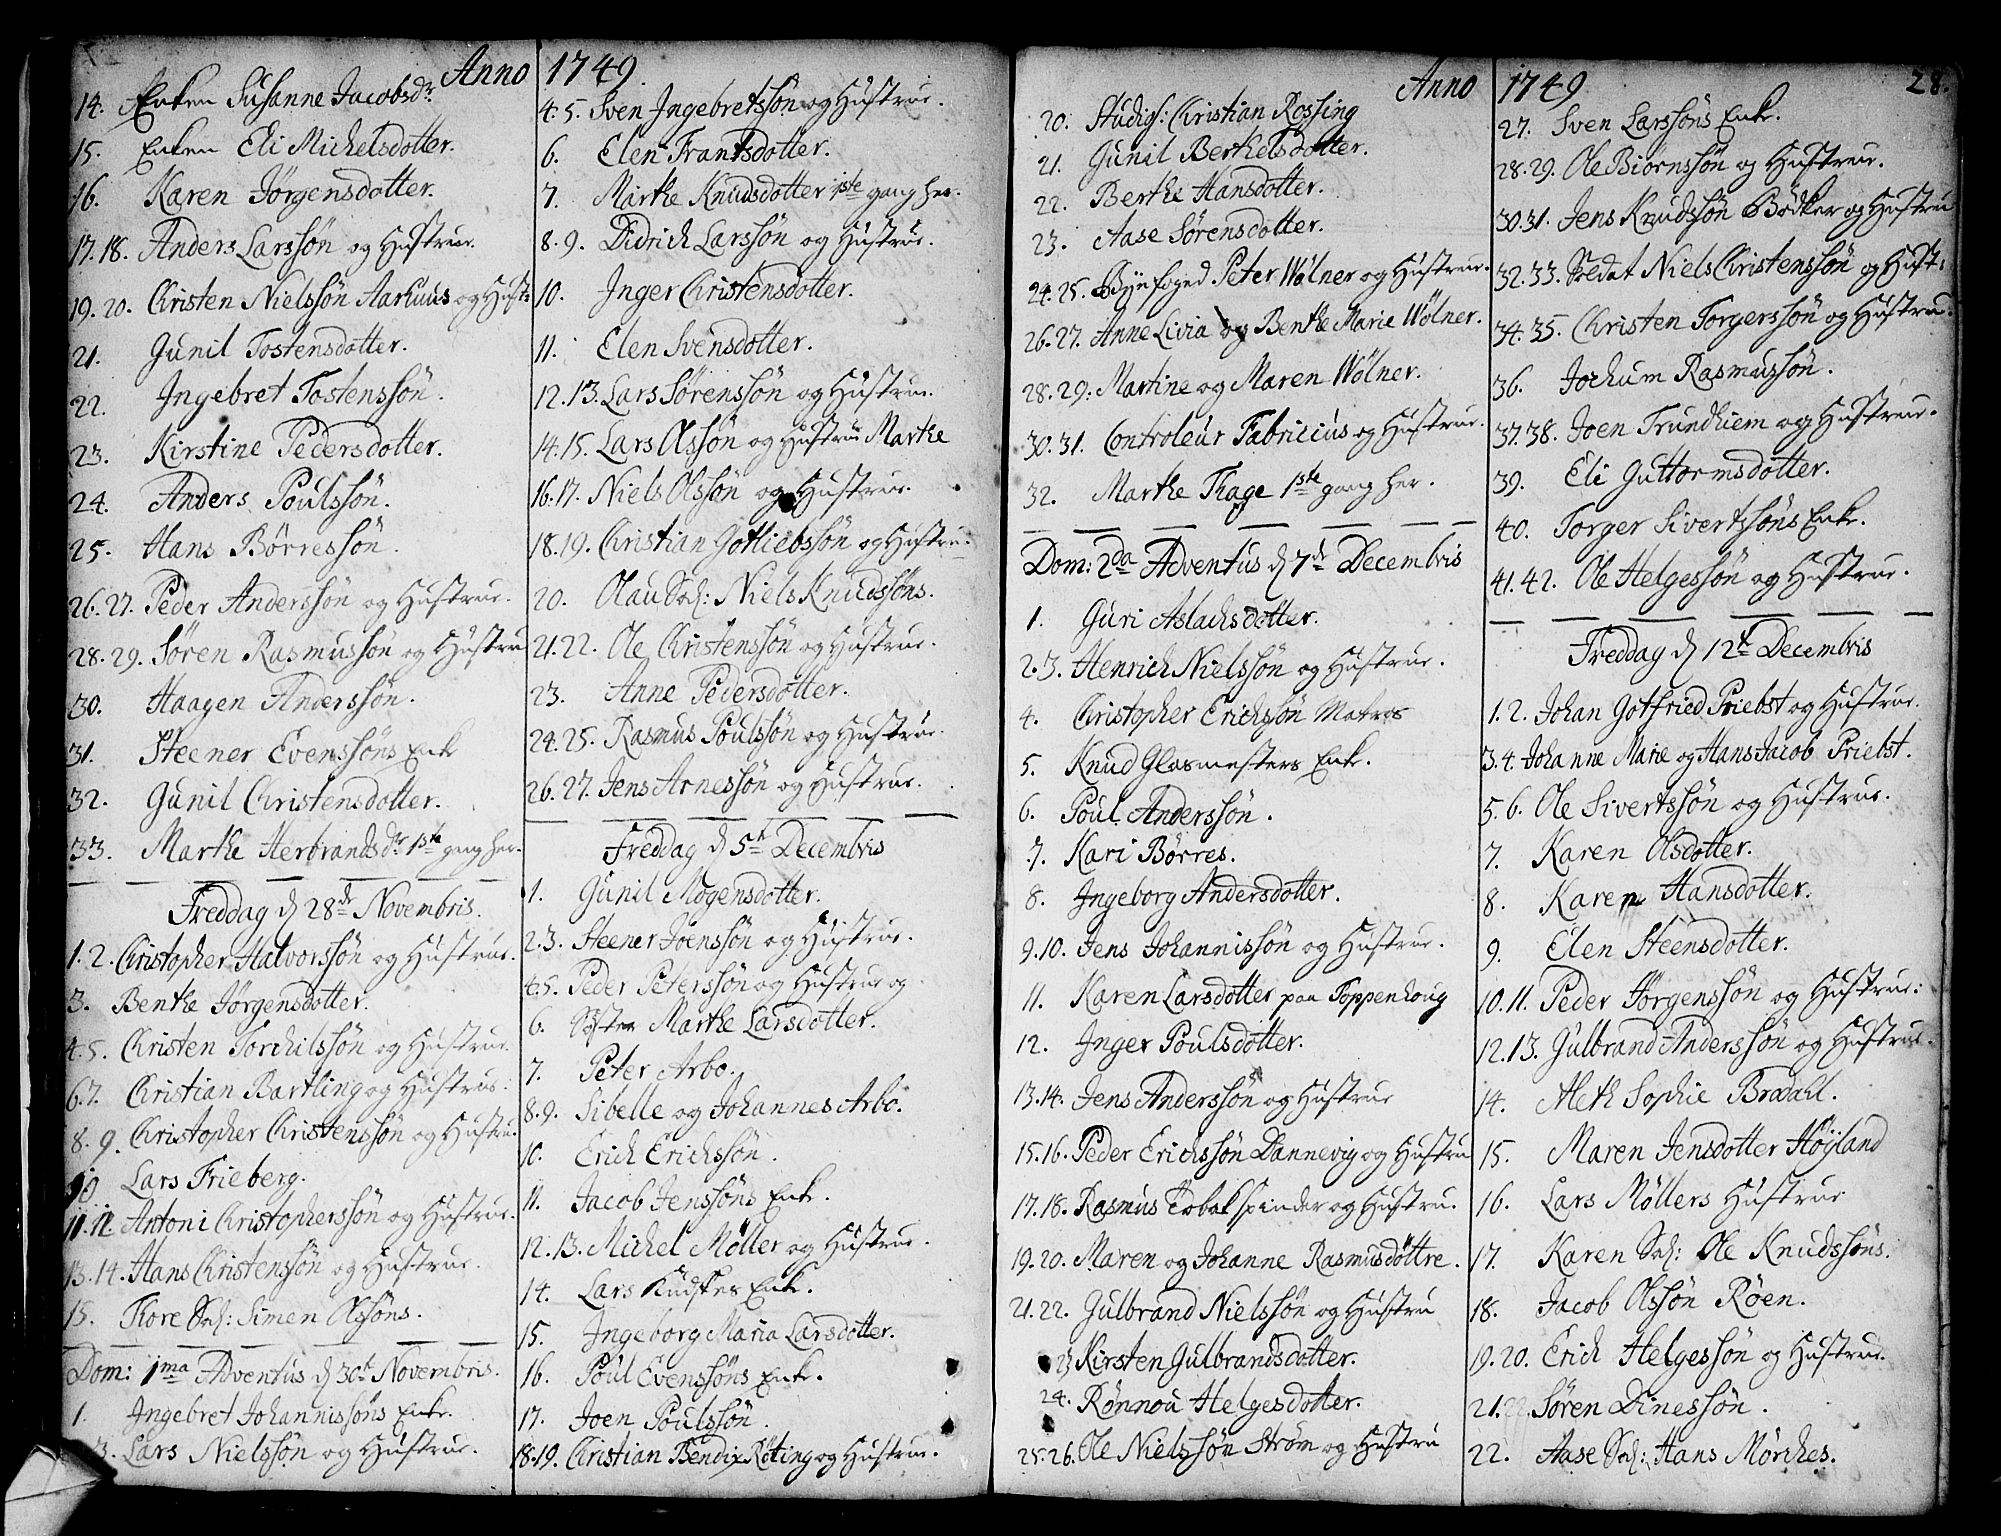 Anno 1749
14. Enken Susanne Jacobsdr.
15. Enken Eli Michelsdotter.
16. Karen Jørgensdotter.
17. 18. Anders Larssøn og Hustrue.
19. 20. Christen Nielssøn Aarhuus og Hust:
21. Gunil Tostensdotter.
22. Ingebret Tostenssøn.
23. Kirstine Pedersdotter.
24. Anders Poulssøn.
25. Hans Børressøn.
26. 27. Peder Anderssøn og Hustrue.
28. 29. Søren Rasmussøn og Hustru
30. Haagen Anderssøn.
31. Steener Evenssøns Enke
32. Gunil Christensdotter.
33. Marthe Herbrandsdr. 1ste gang her.
Freddag d 28de Novembris.
1. 2. Christopher Halvorssøn og Hustrue.
3. Benthe Jørgensdotter.
4. 5. Christen Torchilssøn og Hustrue.
6. 7. Christian Bartling og Hustrue.
8. 9. Christopher Christenssøn og Hustru.
10 Lars Frieberg.
11. 12 Antoni Christopherssøn og Hustrue.
13. 14. Hans Christenssøn og Hustrue.
15. Thore Sal: Simen Olssøns.
Dom: 1ma Adventus d 30t Novembris.
1. Ingebret Johannissøns Enke.
3. Lars Nielssøn og Hustrue.
4. 5. Sven Ingebretssøn og Hustrue.
6. Elen Frantsdotter.
7. Marthe Knudsdotter 1ste gang her.
8. 9. Didrich Larssøn og Hustrue.
10. Inger Christensdotter.
11. Elen Svensdotter.
12. 13. Lars Sørenssøn og Hustrue.
14. 15. Lars Olssøn og Hustrue Marthe
16. 17. Niels Olssøn og Hustrue.
18. 19. Christian Gotliebssøn og Hustru.
20. Olau Sal: Niels Knudssøns.
21. 22. Ole Christenssøn og Hustrue.
23. Anne Pedersdotter.
24. 25. Rasmus Poulssøn og Hustrue.
26. 27. Jens Arnessøn og Hustrue.
Freddag d 5te Decembris
1. Gunil Mogensdotter.
2. 3. Steener Joenssøn og Hustrue.
4. 5. Peder Peterssøn og Hustrue og
6. Søster Marthe Larsdotter.
7. Peter Arbo.
8. 9. Sibelle og Johannes Arbo.
10. Erich Erichssøn.
11. Jacob Jenssøns Enke.
12. 13. Michel Møller og Hustrue.
14. Lars Kudskes Enke.
15. Ingeborg Maria Larsdotter.
16. Poul Evenssøns Enke.
17. Joen Poulssøn.
18. 19. Christian Bendix Røting og Hustrue.
Anno 1749 28.
20. Studios: Christian Rossing
21. Gunil Berthelsdotter.
22. Berthe Hansdotter.
23. Aase Sørensdotter.
24. 25. Byefoged Peter Wølner og Hustrue.
26. 27. Anne Livia og Benthe Marie Wølner.
28. 29. Martine og Maren Wølner.
30. 31. Controleur Fabricius og Hustrue.
32. Marthe Thage 1ste gang her.
Dom: 2da Adventus d 7de Decembris
1. Guri Aslachsdotter.
2. 3. Henrich Nielssøn og Hustrue.
4. Christopher Erichssøn Matros
5. Knud Glasmesters Enke.
6. Poul Anderssøn.
7. Kari Børres.
8. Ingeborg Andersdotter.
9. 10. Jens Johannissøn og Hustrue.
11. Karen Larsdotter paa Toppenhoug
12. Inger Poulsdotter.
13. 14. Jens Anderssøn og Hustrue
15. 16. Peder Erichssøn Dannevig og Hustru
17. 18. Rasmus Tobakspinder og Hustru.
19. 20. Maren og Johanne Rasmusdøttre.
21. 22. Gulbrand Nielssøn og Hustru
23 Kirsten Gulbrandsdotter.
24. Rønnou Helgesdotter.
25. 26. Ole Nielssøn Strøm og Hustru
27. Sven Larssøns Enke.
28. 29. Ole Biørnssøn og Hustrue.
30. 31. Jens Knudssøn Bødker og Hustru
32. 33. Soldat Niels Christenssøn og Hust:
34. 35. Christen Torgerssøn og Hustru.
36. Jochum Rasmussøn.
37. 38. Joen Trundhiem og Hustrue.
39. Eli Guttormsdotter.
40. Torger Sivertssøns Enke.
41. 42. Ole Helgessøn og Hustrue.
Freddag d 12te Decembris
1. 2. Johan Gotfried Priebst og Hustrue.
3. 4. Johanne Marie og Hans Jacob Priebst.
5. 6. Ole Sivertssøn og Hustrue.
7. Karen Olsdotter.
8. Karen Hansdotter.
9. Elen Steensdotter.
10. 11. Peder Jørgenssøn og Hustrue.
12. 13. Gulbrand Anderssøn og Hustrue.
14. Aleth Sophie Brodahl.
15. Maren Jensdotter Høyland
16. Lars Møllers Hustrue
17. Karen Sal: Ole Knudssøns.
18. Jacob Olssøn Røen.
19. 20. Erich Helgessøn og Hustrue.
21. 22. Søren Dinessøn.
22. Aase Sal: Hans Mørches.